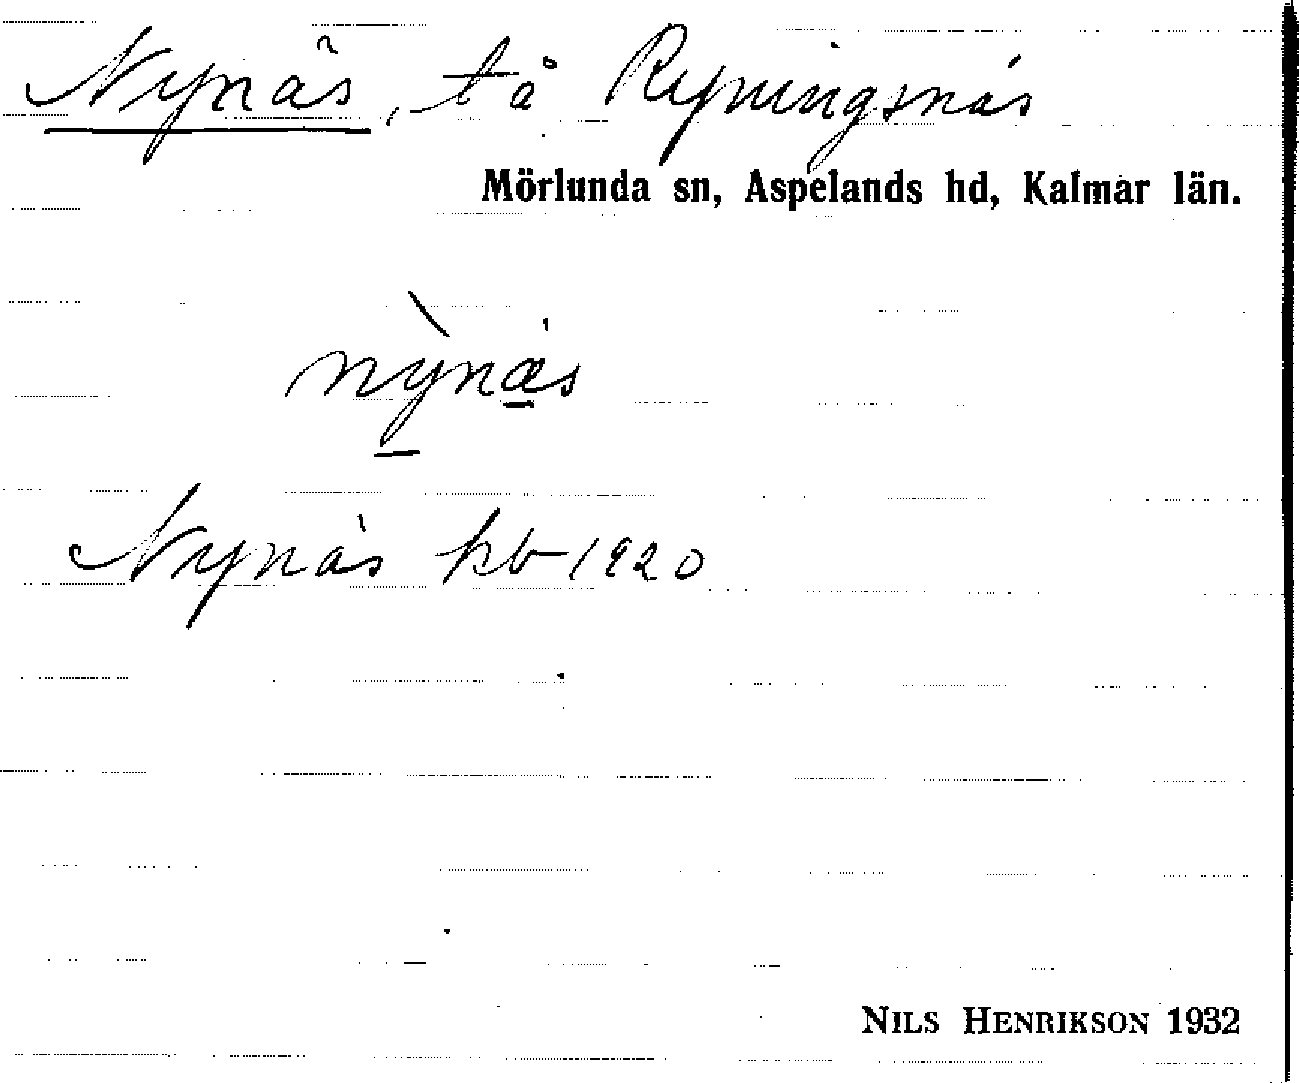 Nynäs, tå Ryningsnäs
Mörlunda sn, Aspelands hd, Kalmar län.
nỳnæ̀s
Nynäs kb 1920
NILS HENRIKSON 1932